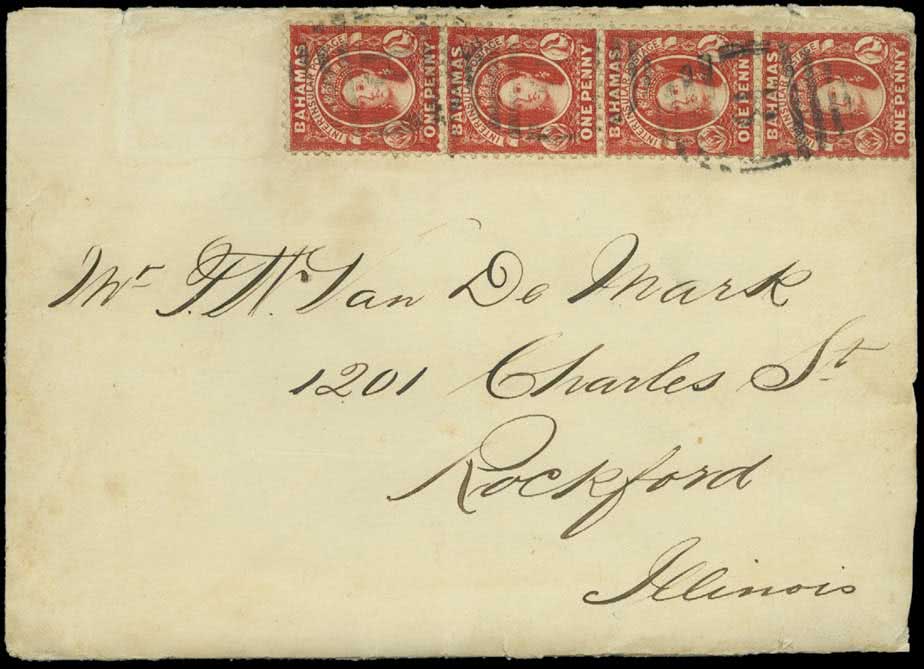 BAHAMAS INTERINSULAR POSTAGE ONE PENNY
BAHAMAS INTERINSULAR POSTAGE ONE PENNY
BAHAMAS INTERINSULAR POSTAGE ONE PENNY
BAHAMAS INTERINSULAR POSTAGE ONE PENNY
Mr F.W. Van De Mark
1201 Charles St.
Rockford
Illinois